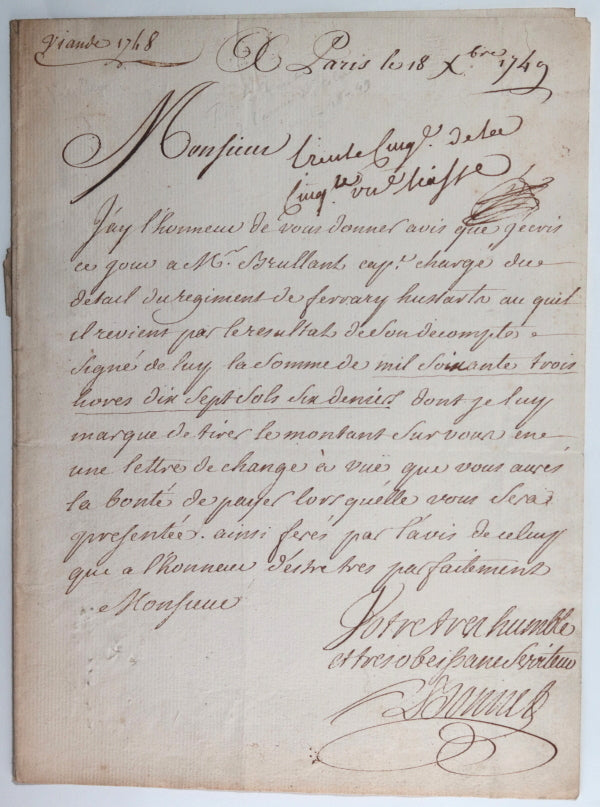 Viande 1748
A Paris le 18 Xbre 1749
Monsieur
trente Cinqe. de la
Cinqe liasse
J'ay l'honneur de vous donner avis que j'écris
ce jour a Mr. Brullant capne. chargé du
detail du regiment de ferrary hussarts au quel
il revient par le resultat de son decompte
signé de luy la somme de mil soixante trois
livres dix sept sols six deniers dont je luy
marque de tirer le montant sur vous en
une lettre de change à vuë que vous aurés
la bonté de payer lorsqu'elle vous sera
presentée. ainsi ferés par l'avis de celuy
que a l'honneur d'estre tres parfaitement
Monsieur
Votre tres humble
et tres obeissant Serviteur